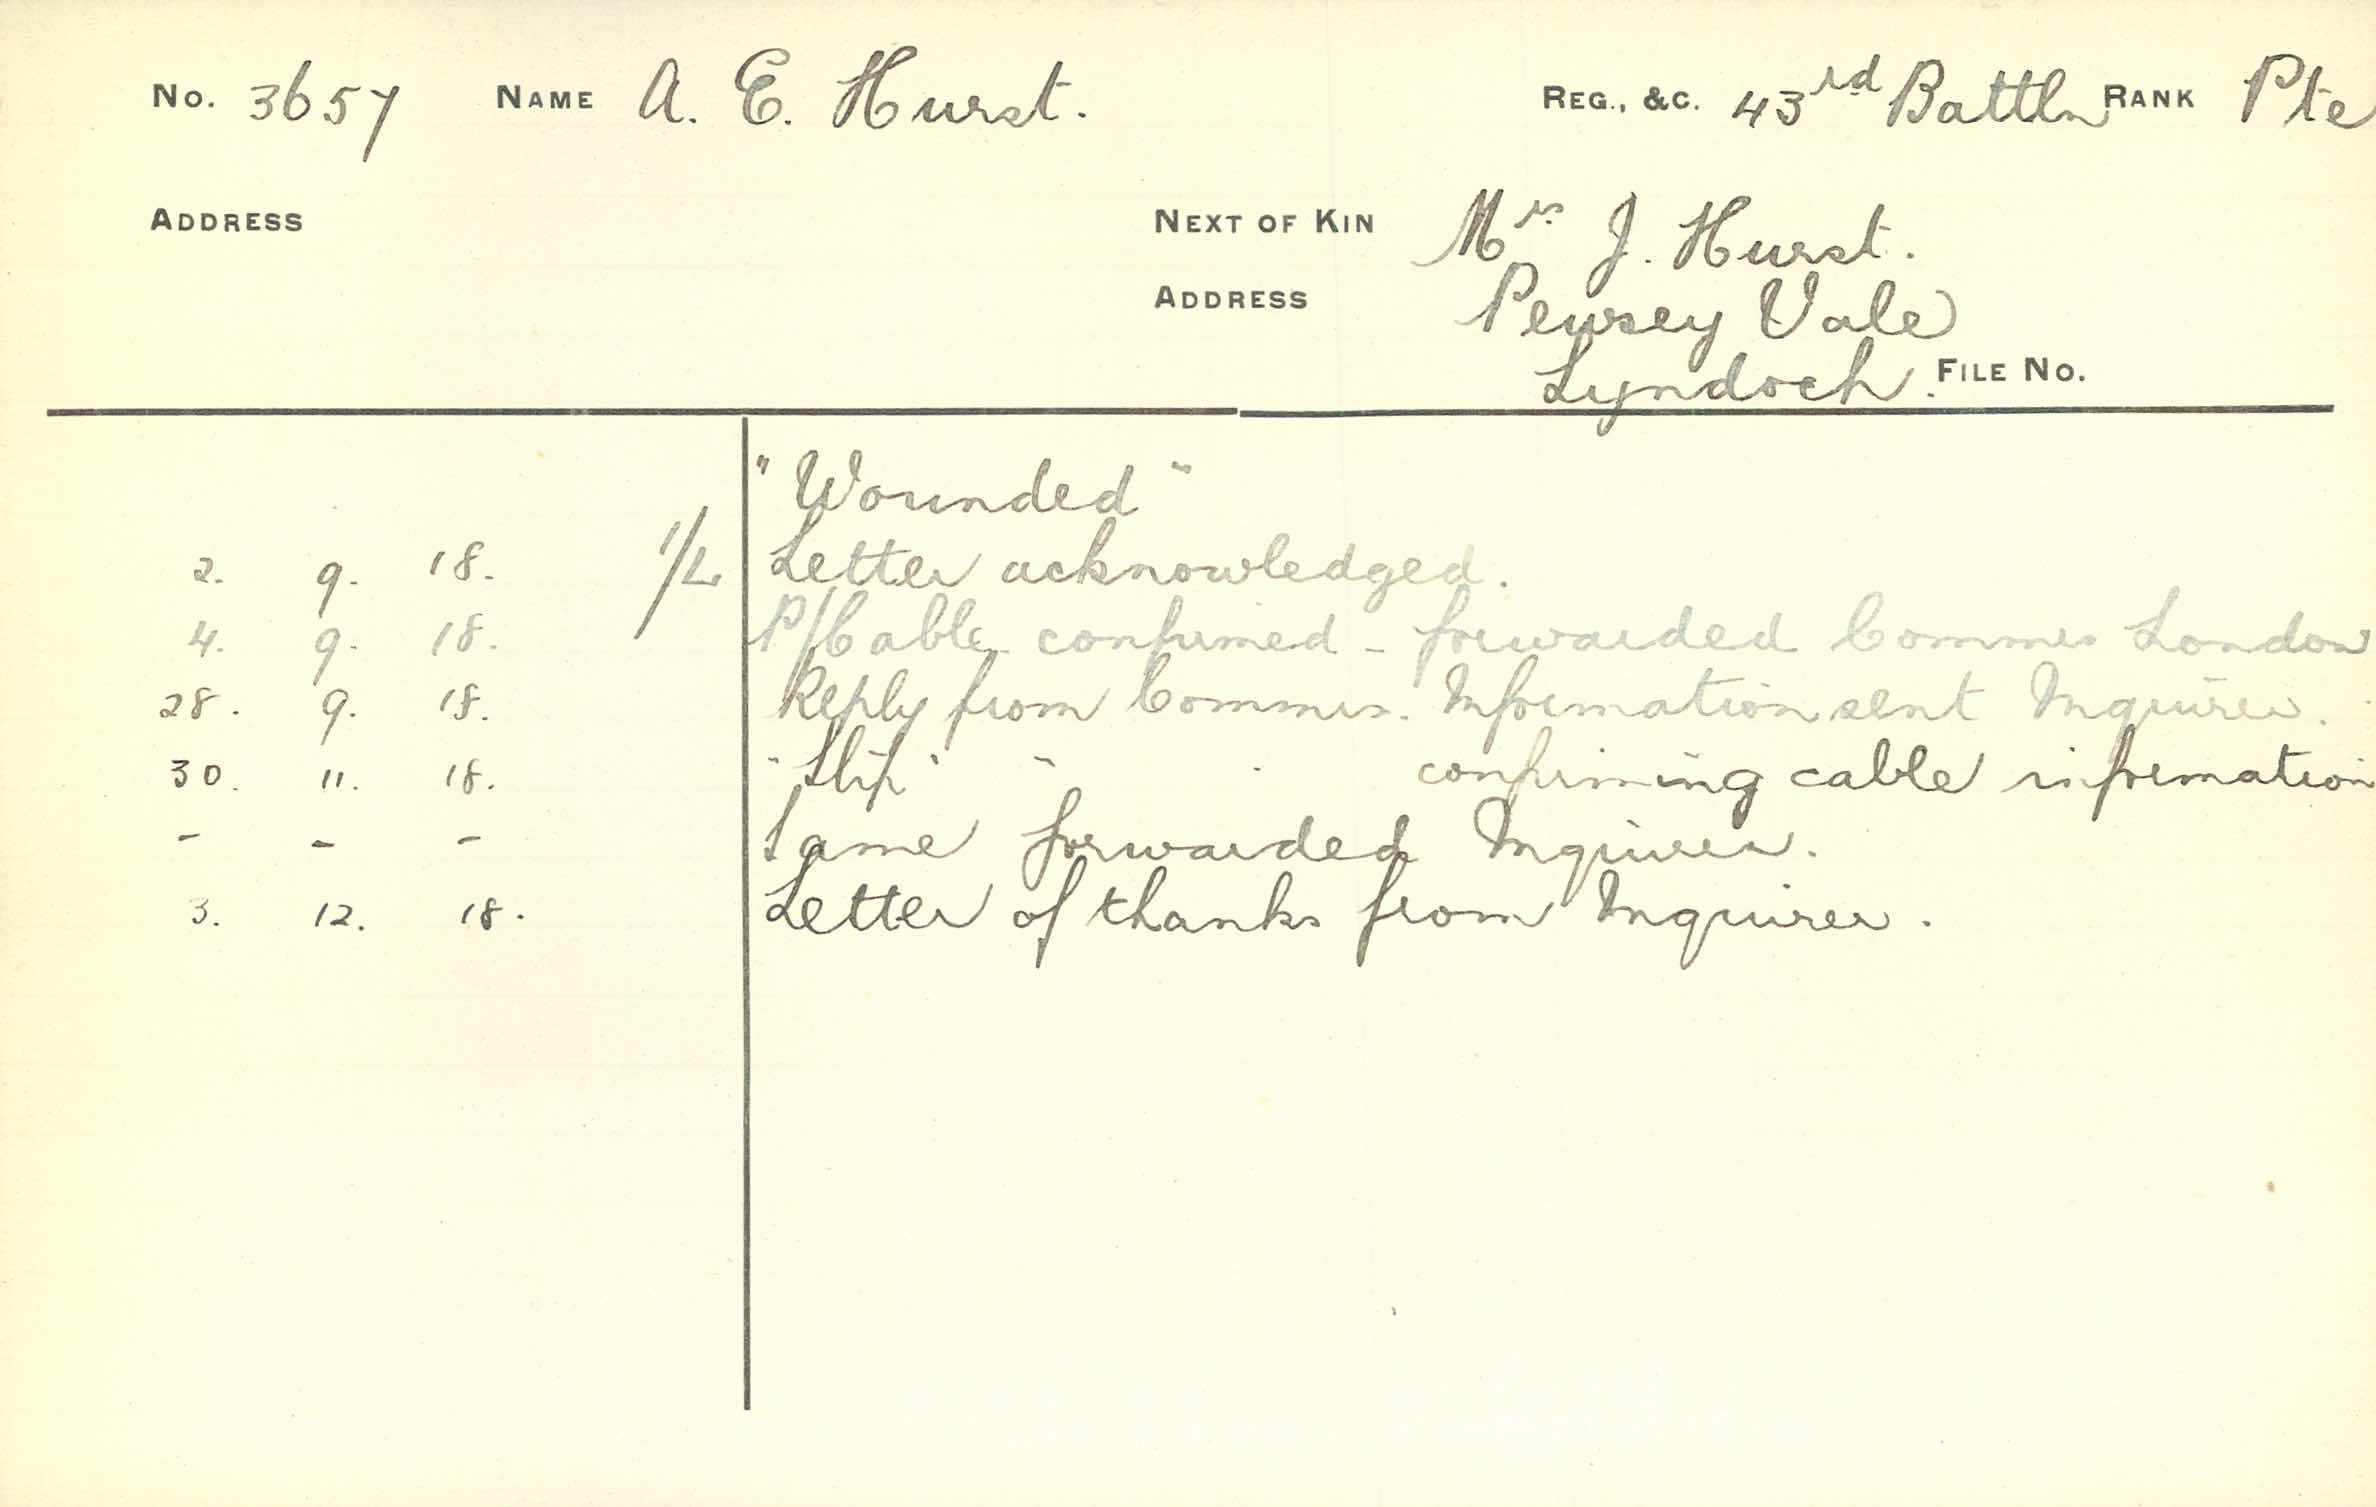 No. 3657 NAME A. E. Hurst. REG., &C. 43rd Battln RANK Pte
ADDRESS NEXT OF KIN Mrs J. Hurst.
ADDRESS Pewsey Vale
Lyndoch. FILE No.
"Wounded"
2. 9. 18. 1/L Letter acknowledged.
4. 9. 18. P/Cable confirmed - forwarded Commis London
28. 9. 18. Reply from Commis. Information sent Inquirer.
30. 11. 18. "Slip" " " confirming cable information
- - - Same forwarded Inquirer.
3. 12. 18. Letter of thanks from Inquirer.